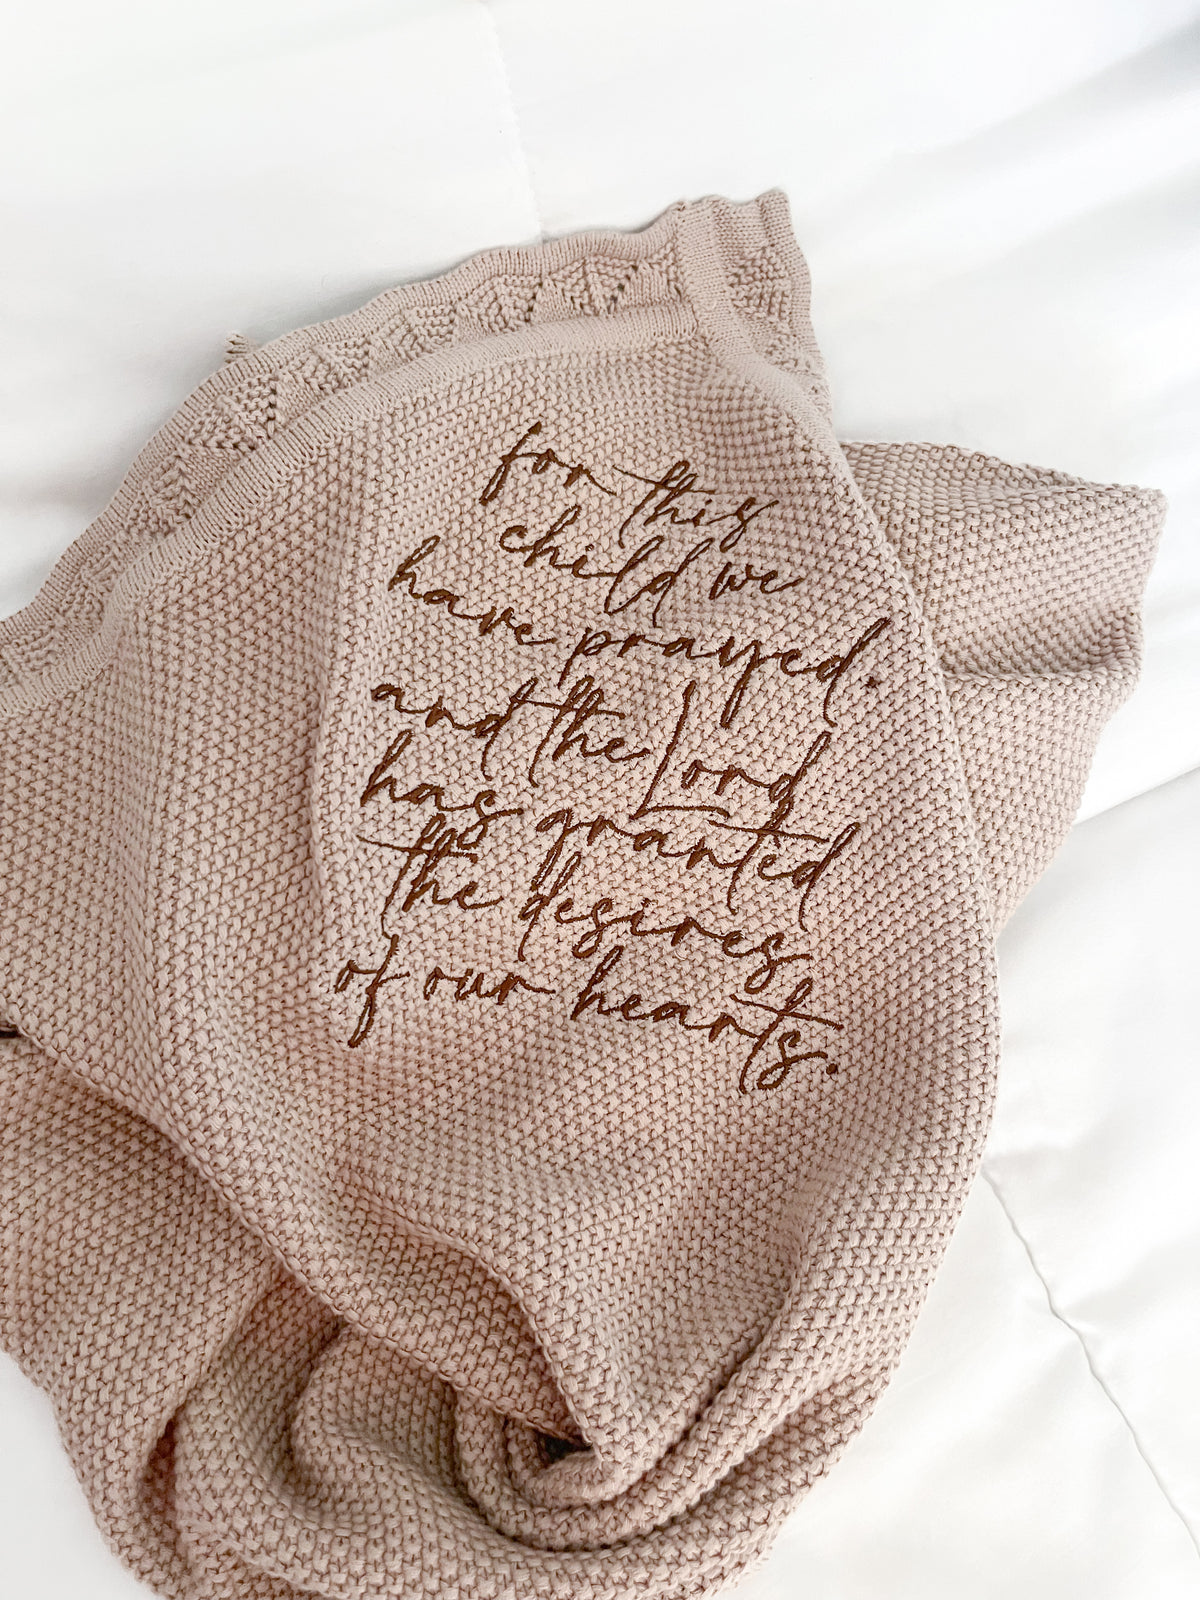 for this
child we
have prayed.
and the Lord
has granted
the desires
of our hearts.